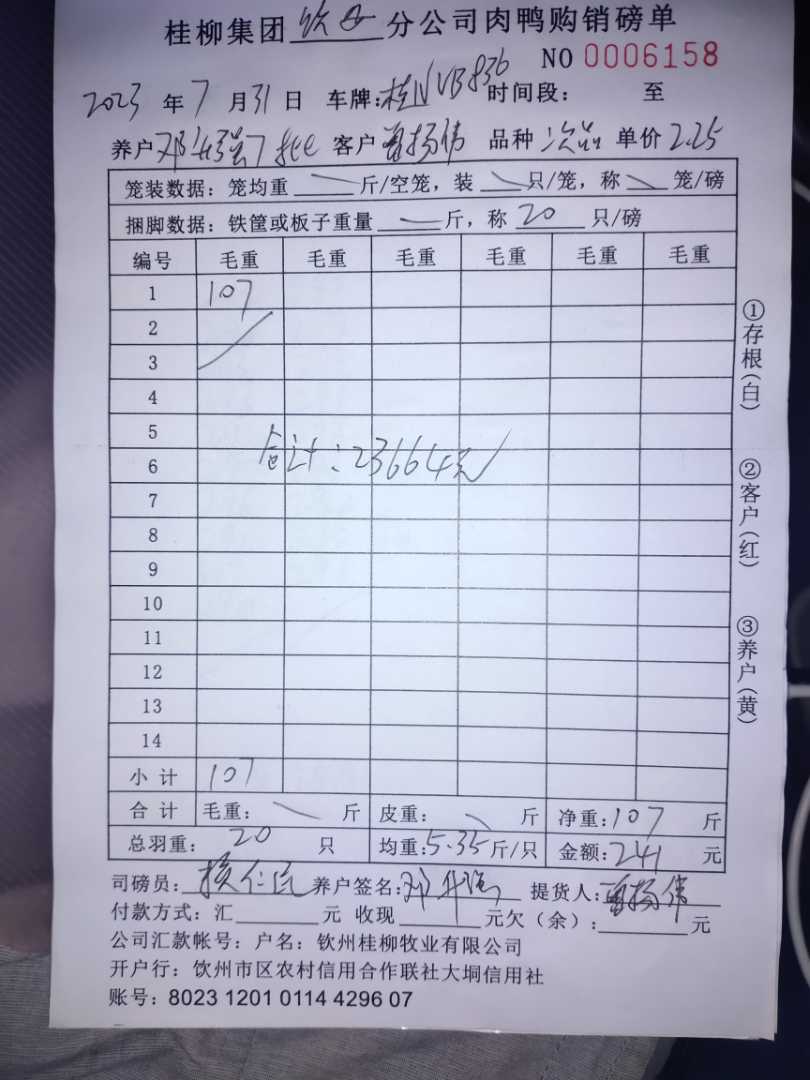 桂柳集团 分公司肉鸭购销磅单
NO 0006158
2023 年 7 月 31 日 车牌：桂NVB836 时间段： 至
养户 邓 批 客户 扬伟 品种 次品 单价 2.25
笼装数据：笼均重 斤/空笼，装 只/笼，称 笼/磅
捆脚数据：铁筐或板子重量 斤，称 20 只/磅
编号 毛重 毛重 毛重 毛重 毛重 毛重
1 107
2
3
4
5
合计：23664元
6
7
8
9
10
11
12
13
14
小 计 107
合 计 毛重： 斤 皮重： 斤 净重：107 斤
总羽重： 20 只 均重：5.35 斤/只 金额：241 元
司磅员： 养户签名：邓 提货人： 扬伟
付款方式：汇 元 收现 元欠（余）： 元
公司汇款帐号：户名：钦州桂柳牧业有限公司
开户行：饮州市区农村信用合作联社大垌信用社
账号：8023 1201 0114 4296 07
①存根（白）
②客户（红）
③养户（黄）